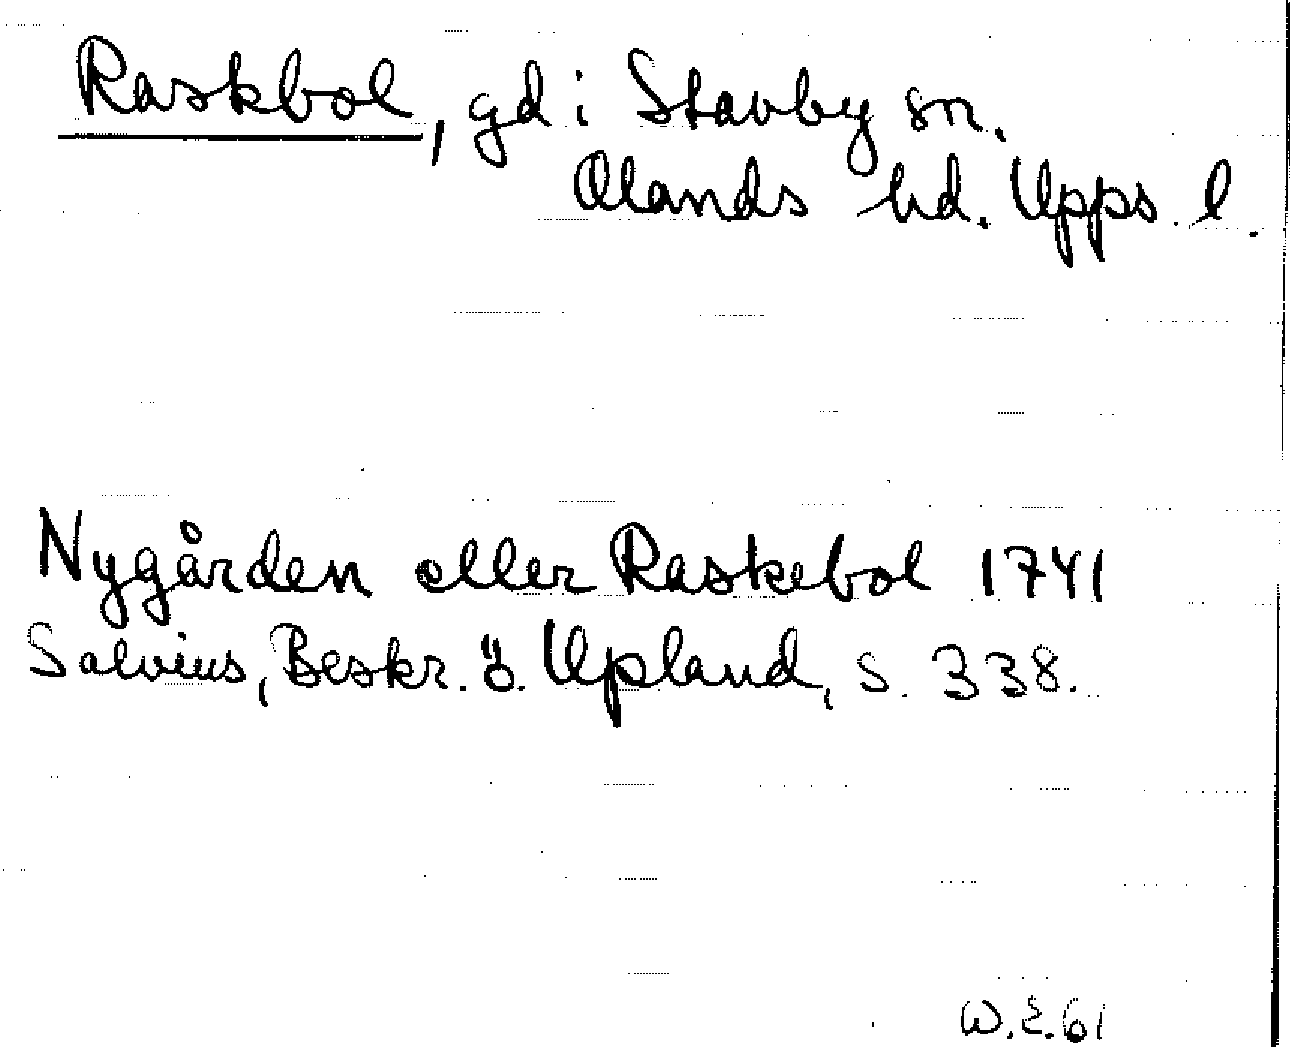 Raskbol, gd i Stavby sn.
Olands hd. Upps. l.
Nygården eller Raskebol 1741
Salvius, Beskr. ö. Upland, s. 338.
W.E.61